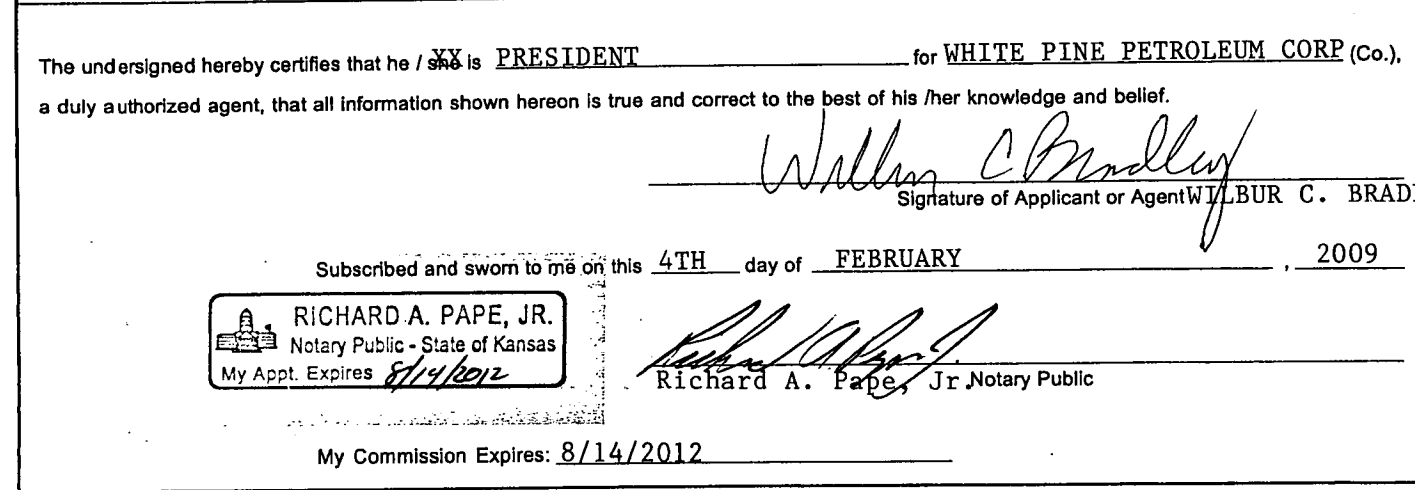 The undersigned hereby certifies that he / XX is PRESIDENT for WHITE PINE PETROLEUM CORP (Co.),
a duly authorized agent, that all information shown hereon is true and correct to the best of his /her knowledge and belief.
Wilbur C Bradley
Signature of Applicant or Agent WILBUR C. BRADL
Subscribed and sworn to me on this 4TH day of FEBRUARY , 2009
RICHARD A. PAPE, JR.
Notary Public - State of Kansas
My Appt. Expires 8/14/2012
Richard A Pape Jr.
Richard A. Pape, Jr. Notary Public
My Commission Expires: 8/14/2012